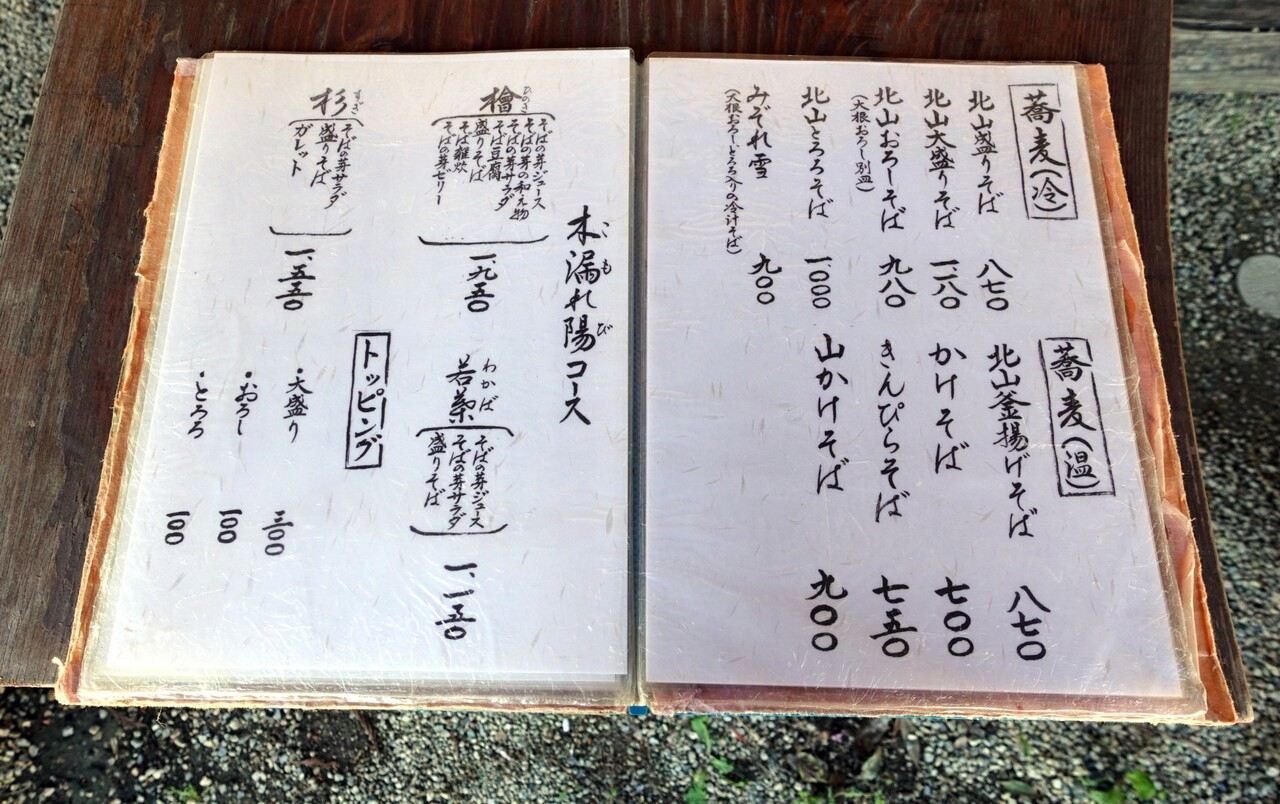 蕎麦(冷)
北山盛りそば 八七〇
北山大盛りそば 一、一八〇
北山おろしそば 九八〇
(大根おろし別皿)
北山とろろそば 一、〇〇〇
みぞれ雪 九〇〇
(大根おろしとろろ入りの冷汁そば)
蕎麦(温)
北山釜揚げそば 八七〇
かけそば 七〇〇
きんぴらそば 七五〇
山かけそば 九〇〇
木漏れ陽コース
こもび
檜
ひのき
そばの芽ジュース
そばの芽の和え物
そばの芽サラダ
そば豆腐
盛りそば
そば雑炊
そばの芽ゼリー
一、九五〇
杉
すぎ
そばの芽サラダ
盛りそば
ガレット
一、五五〇
若葉
わかば
そばの芽ジュース
そばの芽サラダ
盛りそば
一、一五〇
トッピング
・大盛り 三〇〇
・おろし 一〇〇
・とろろ 一〇〇